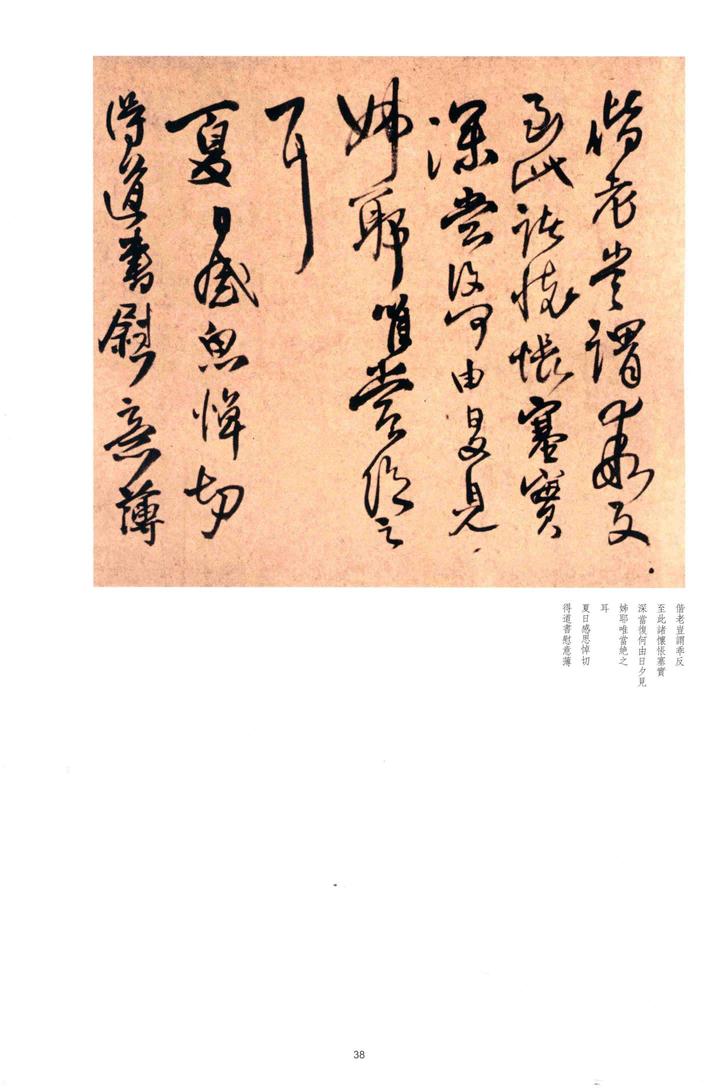 偕老豈謂乖反
至此諸懷悵塞實
深當復何由日夕見
姊耶唯當絶之
耳
夏日感思悼切
得道書慰意薄
偕老豈謂乖反
至此諸懷悵塞實
深當復何由日夕見
姊耶唯當絶之
耳
夏日感思悼切
得道書慰意薄
38